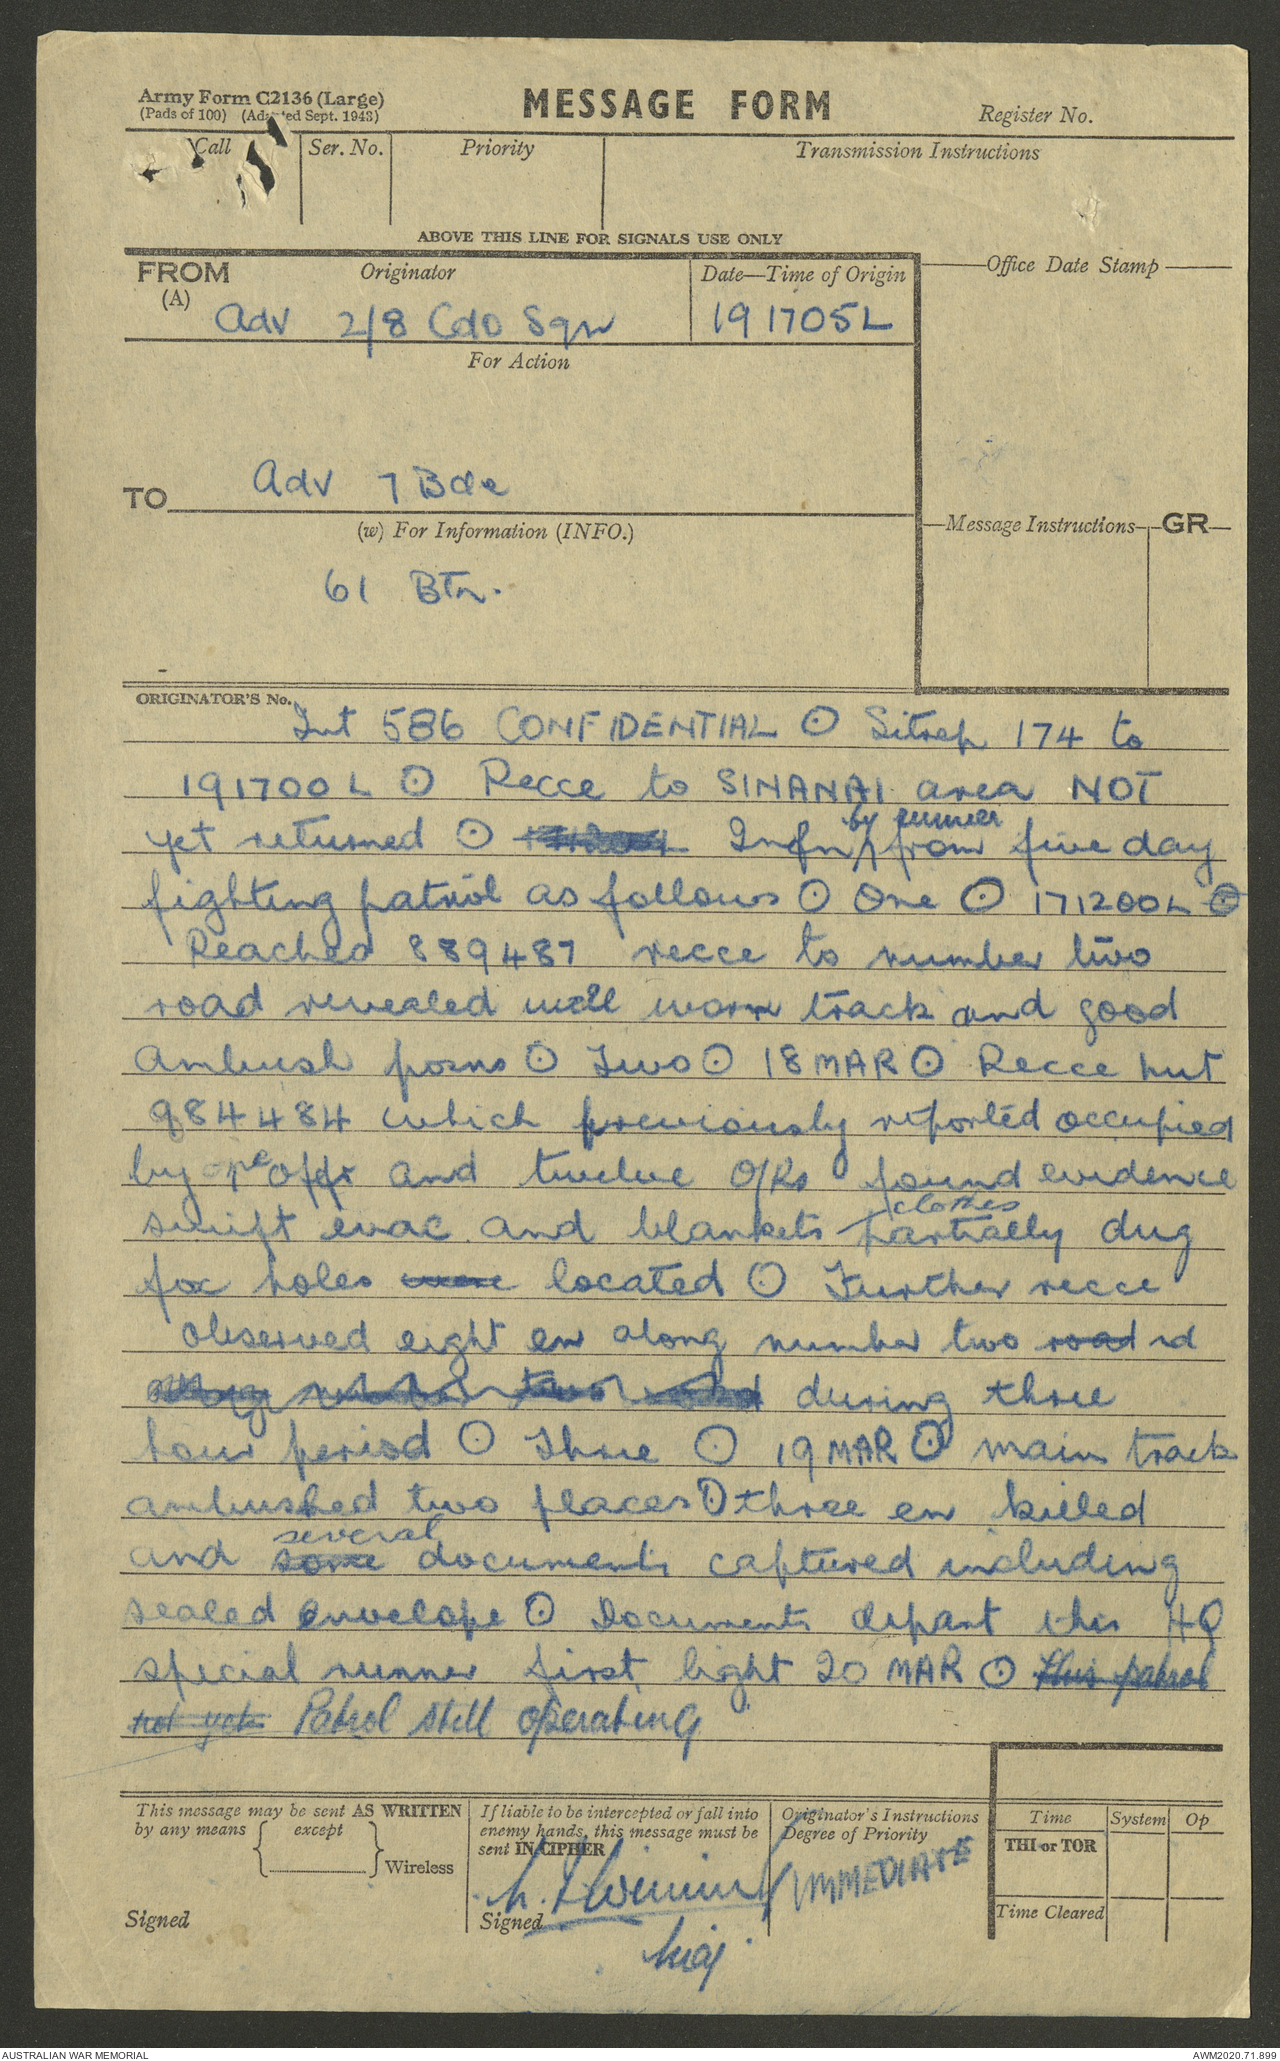 Army Form C2136 (Large)
(Pads of 100) (Adapted Sept. 1943)
MESSAGE FORM
Register No.
Call
Ser. No.
Priority
Transmission Instructions
ABOVE THIS LINE FOR SIGNALS USE ONLY
FROM
(A)
Originator
Date—Time of Origin
Office Date Stamp
Adv 2/8 Cdo Sqn
191705L
For Action
TO
Adv 7 Bde
(w) For Information (INFO.)
Message Instructions
GR
61 Btn.
ORIGINATOR'S No.
Int 586 CONFIDENTIAL ⊙ Sitrep 174 to
191700L ⊙ Recce to SINANAI area NOT
yet returned ⊙ Infn by runner from five day
fighting patrol as follows ⊙ One ⊙ 171200L ⊙
Reached 889487 recce to number two
road revealed well worn track and good
ambush posns ⊙ Two ⊙ 18 MAR ⊙ Recce hut
984484 which previously reported occupied
by one offr and twelve O/Rs found evidence
swift evac and blankets clothes partially dug
fox holes were located ⊙ Further recce
observed eight en along number two road rd
along number two road during three
hour period ⊙ Three ⊙ 19 MAR ⊙ main track
ambushed two places ⊙ three en killed
and some several documents captured including
sealed envelope ⊙ Documents depart this HQ
special runner first light 20 MAR ⊙ this patrol
not yet Patrol still operating
This message may be sent AS WRITTEN
by any means except
Wireless
Signed
If liable to be intercepted or fall into
enemy hands, this message must be
sent IN CIPHER
Signed
Maj.
Originator's Instructions
Degree of Priority
IMMEDIATE
Time
System
Op
THI or TOR
Time Cleared
AUSTRALIAN WAR MEMORIAL
AWM2020.71.899